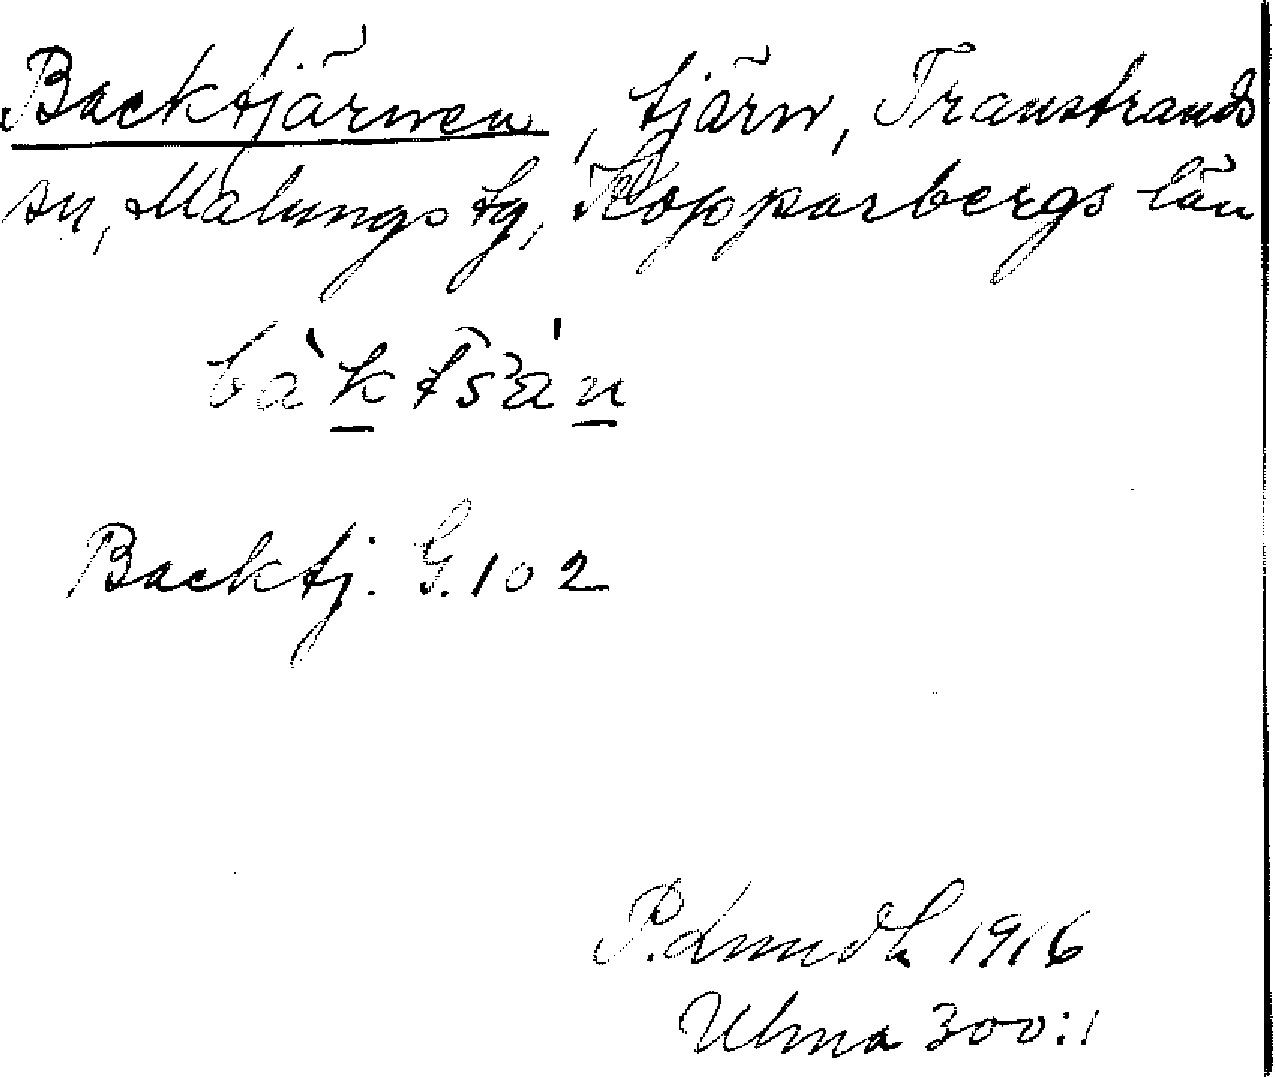 Backtjärnen, tjärn, Transtrands
sn, Malungs tg, Kopparbergs län
Backtj. G. 102
P. Lundh 1916
Ulma 300:1